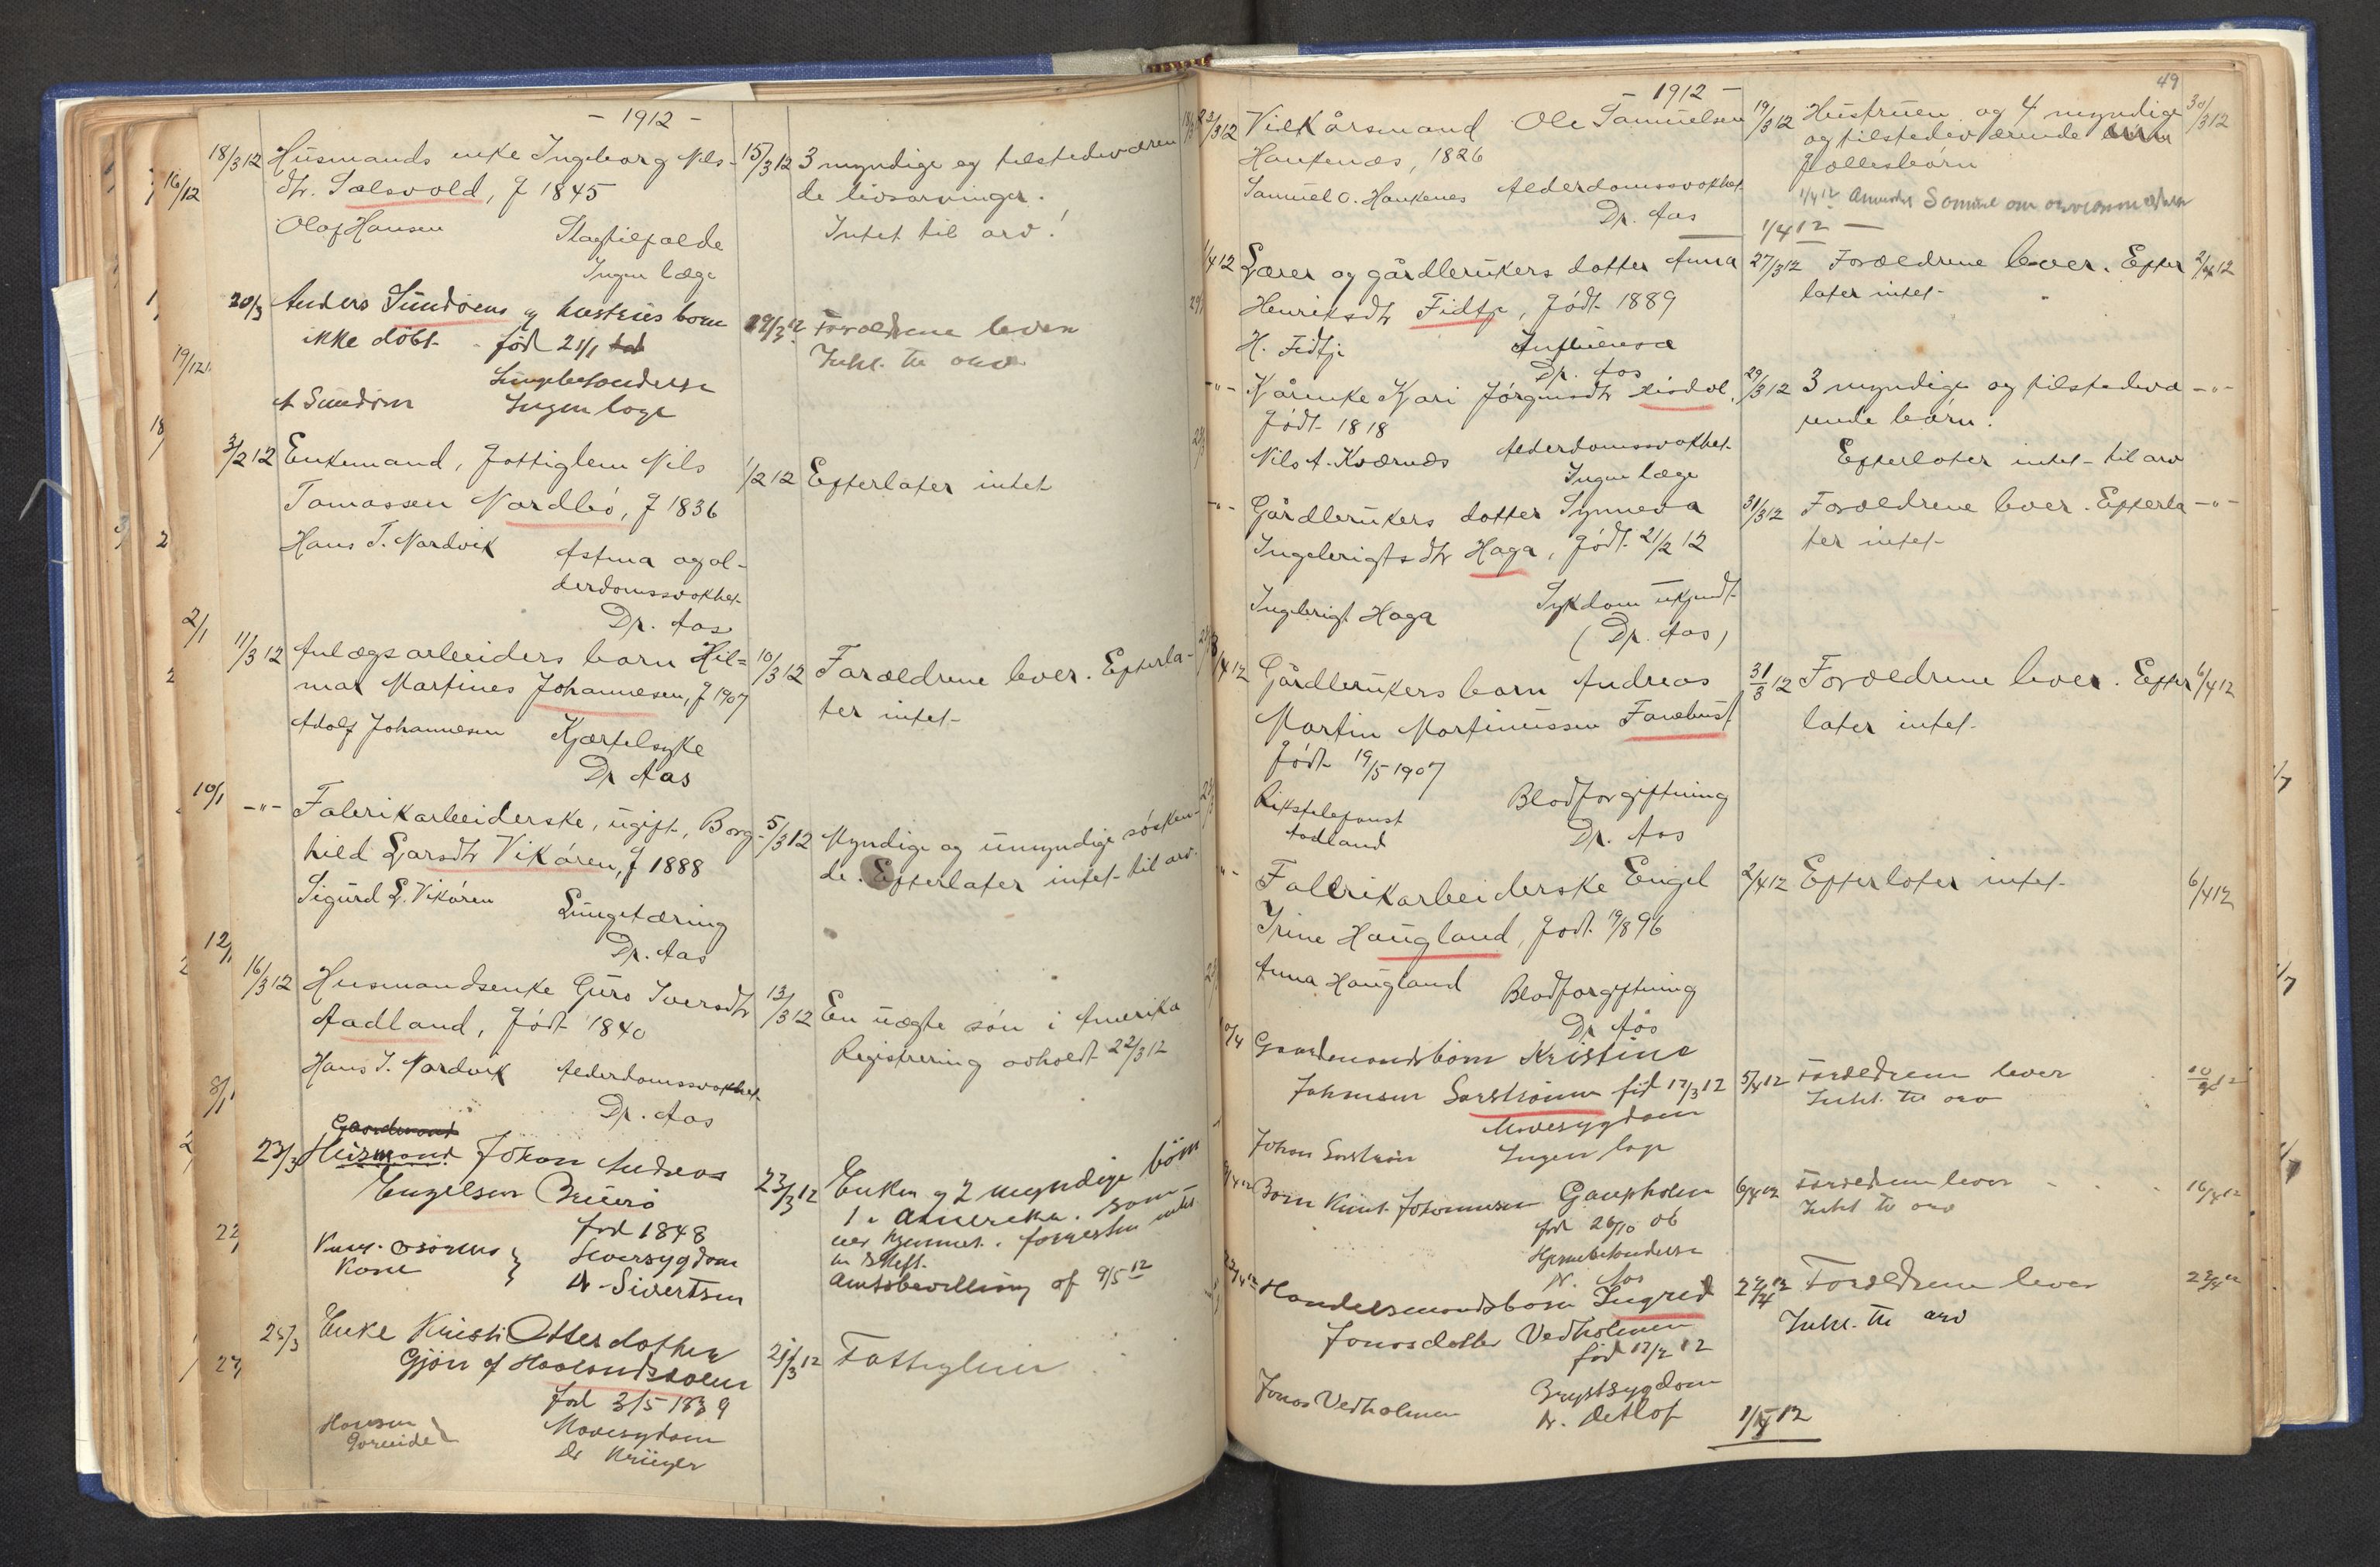 - 1912 -
18/3 12 Husmands enke Ingeborg Nils- 15/3 12 3 myndige og tilstedeværen
dtr. Sælsvold, f 1845 de livsarvinger.
Olaf Hansen Slagtilfælde Intet til arv!
Ingen læge
20/3 Anders Sundöens og hustrus barn 19/3 12 Forældrene lever
ikke döbt - föd 21/1 Intet til arv
Lungebetændelse
A Sundöen Ingen læge
3/2 12 Enkemand, fattiglem Nils 1/2 12 Efterlater intet
Tomassen Nordbö, f 1836
Hans T. Nordvik Astma og al-
derdomssvakhet
Dr. Aas
11/3 12 Anlægsarbeiders barn Hil= 10/3 12 Forældrene lever. Efterla-
mar Martines Johannesen, f 1907 ter intet-
Adolf Johannesen Kjertelsyke
Dr Aas
-"- Fabrikarbeiderske, ugift, Borg- 5/3 12 Myndige og umyndige sösken-
hild Larsdtr Vikören, f 1888 de. Efterlater intet til arv.
Sigurd L. Vikören Lungetæring
Dr. Aas
16/3 12 Husmandsenke Guro Iversdtr 13/3 12 En uægte sön i Amerika
Aadland, födt 1840 Registrering avholdt 22/3 12
Hans T. Nordvik Alderdomssvakhet
Dr. Aas
Gaardmand
23/3 Husmand Johan Andreas 23/3 12 Enken og 2 myndige börn
Engelsen Bruerö 1 i Amerika.
föd 1848
Kone Leversygdom
Dr Sivertsen Amtsbevilling af 9/5 12
25/3 Enke Kristi Otterdotter 21/3 12 Fattiglem
Gjön af
föd 3/5 1839
Hansen Mavesygdom
Dr Krüger
- 1912 - 49
22/3 12 Vilkårsmand Ole Samuelsen 19/3 12 Hustruen og 4 myndige 30/3 12
Haukenæs, 1826 og tilstedeværende
fællesbörn
Samuel O. Haukenes Alderdomssvakhet 1/4 12
Dr. Aas 1/4 12 -
1/4 12 Lærer og gårdbrukers datter Anna 27/3 12 Forældrene lever. Efter 2/4 12
Henriksdtr Fidtje, födt 1889 later intet-
H. Fidtje Influensa
Dr. Aas
-"- Kårenke Kari Jörgensdtr 29/3 12 3 myndige og tilstedevæ -"-
födt 1818 rende börn.
Nils A. Kværnæs Alderdomssvakhet Efterlater intet til arv
Ingen læge
-"- Gårdbrukers datter Synneva 31/3 12 Forældrene lever. Efterla -"-
Ingebrigtsdtr Haga, födt 21/2 12 ter intet-
Ingebrigt Haga Sykdom ukjendt
(Dr. Aas)
/4 12 Gårdbrukers barn Andreas 31/3 12 Forældrene lever. Efter 6/4 12
Martin Martinussen Farebust later intet.
födt 19/5 1907
Rikstelefonst Blodforgiftning
Aadland Dr. Aas
-"- Fabrikarbeiderske Engel 2/4 12 Efterlater intet- 6/4 12
Trine Haugland, födt 19/8 96
Anna Haugland Blodforgiftning
Dr Aas
Gaardmandsbarn Kristine 5/4 12 Forældrene lever 10/4 12
Johansen Sørström föd 12/3 12 Intet til arv
Mavesygdom
Johan Sørström Ingen læge
Barn Knut Johannesen Gaupholm 6/4 12 Forældrene lever 16/4 12
föd 26/10 06 Intet til arv
Hjernebetændelse
Dr. Aas
Handelsmandsbarn Ingrid 22/4 12 Forældrene lever 22/4 12
Jonasdatter Vedholmen Intet til arv
föd 17/2 12
Brystsygdom
Jonas Vedholmen Dr. Detlof 1/5 12